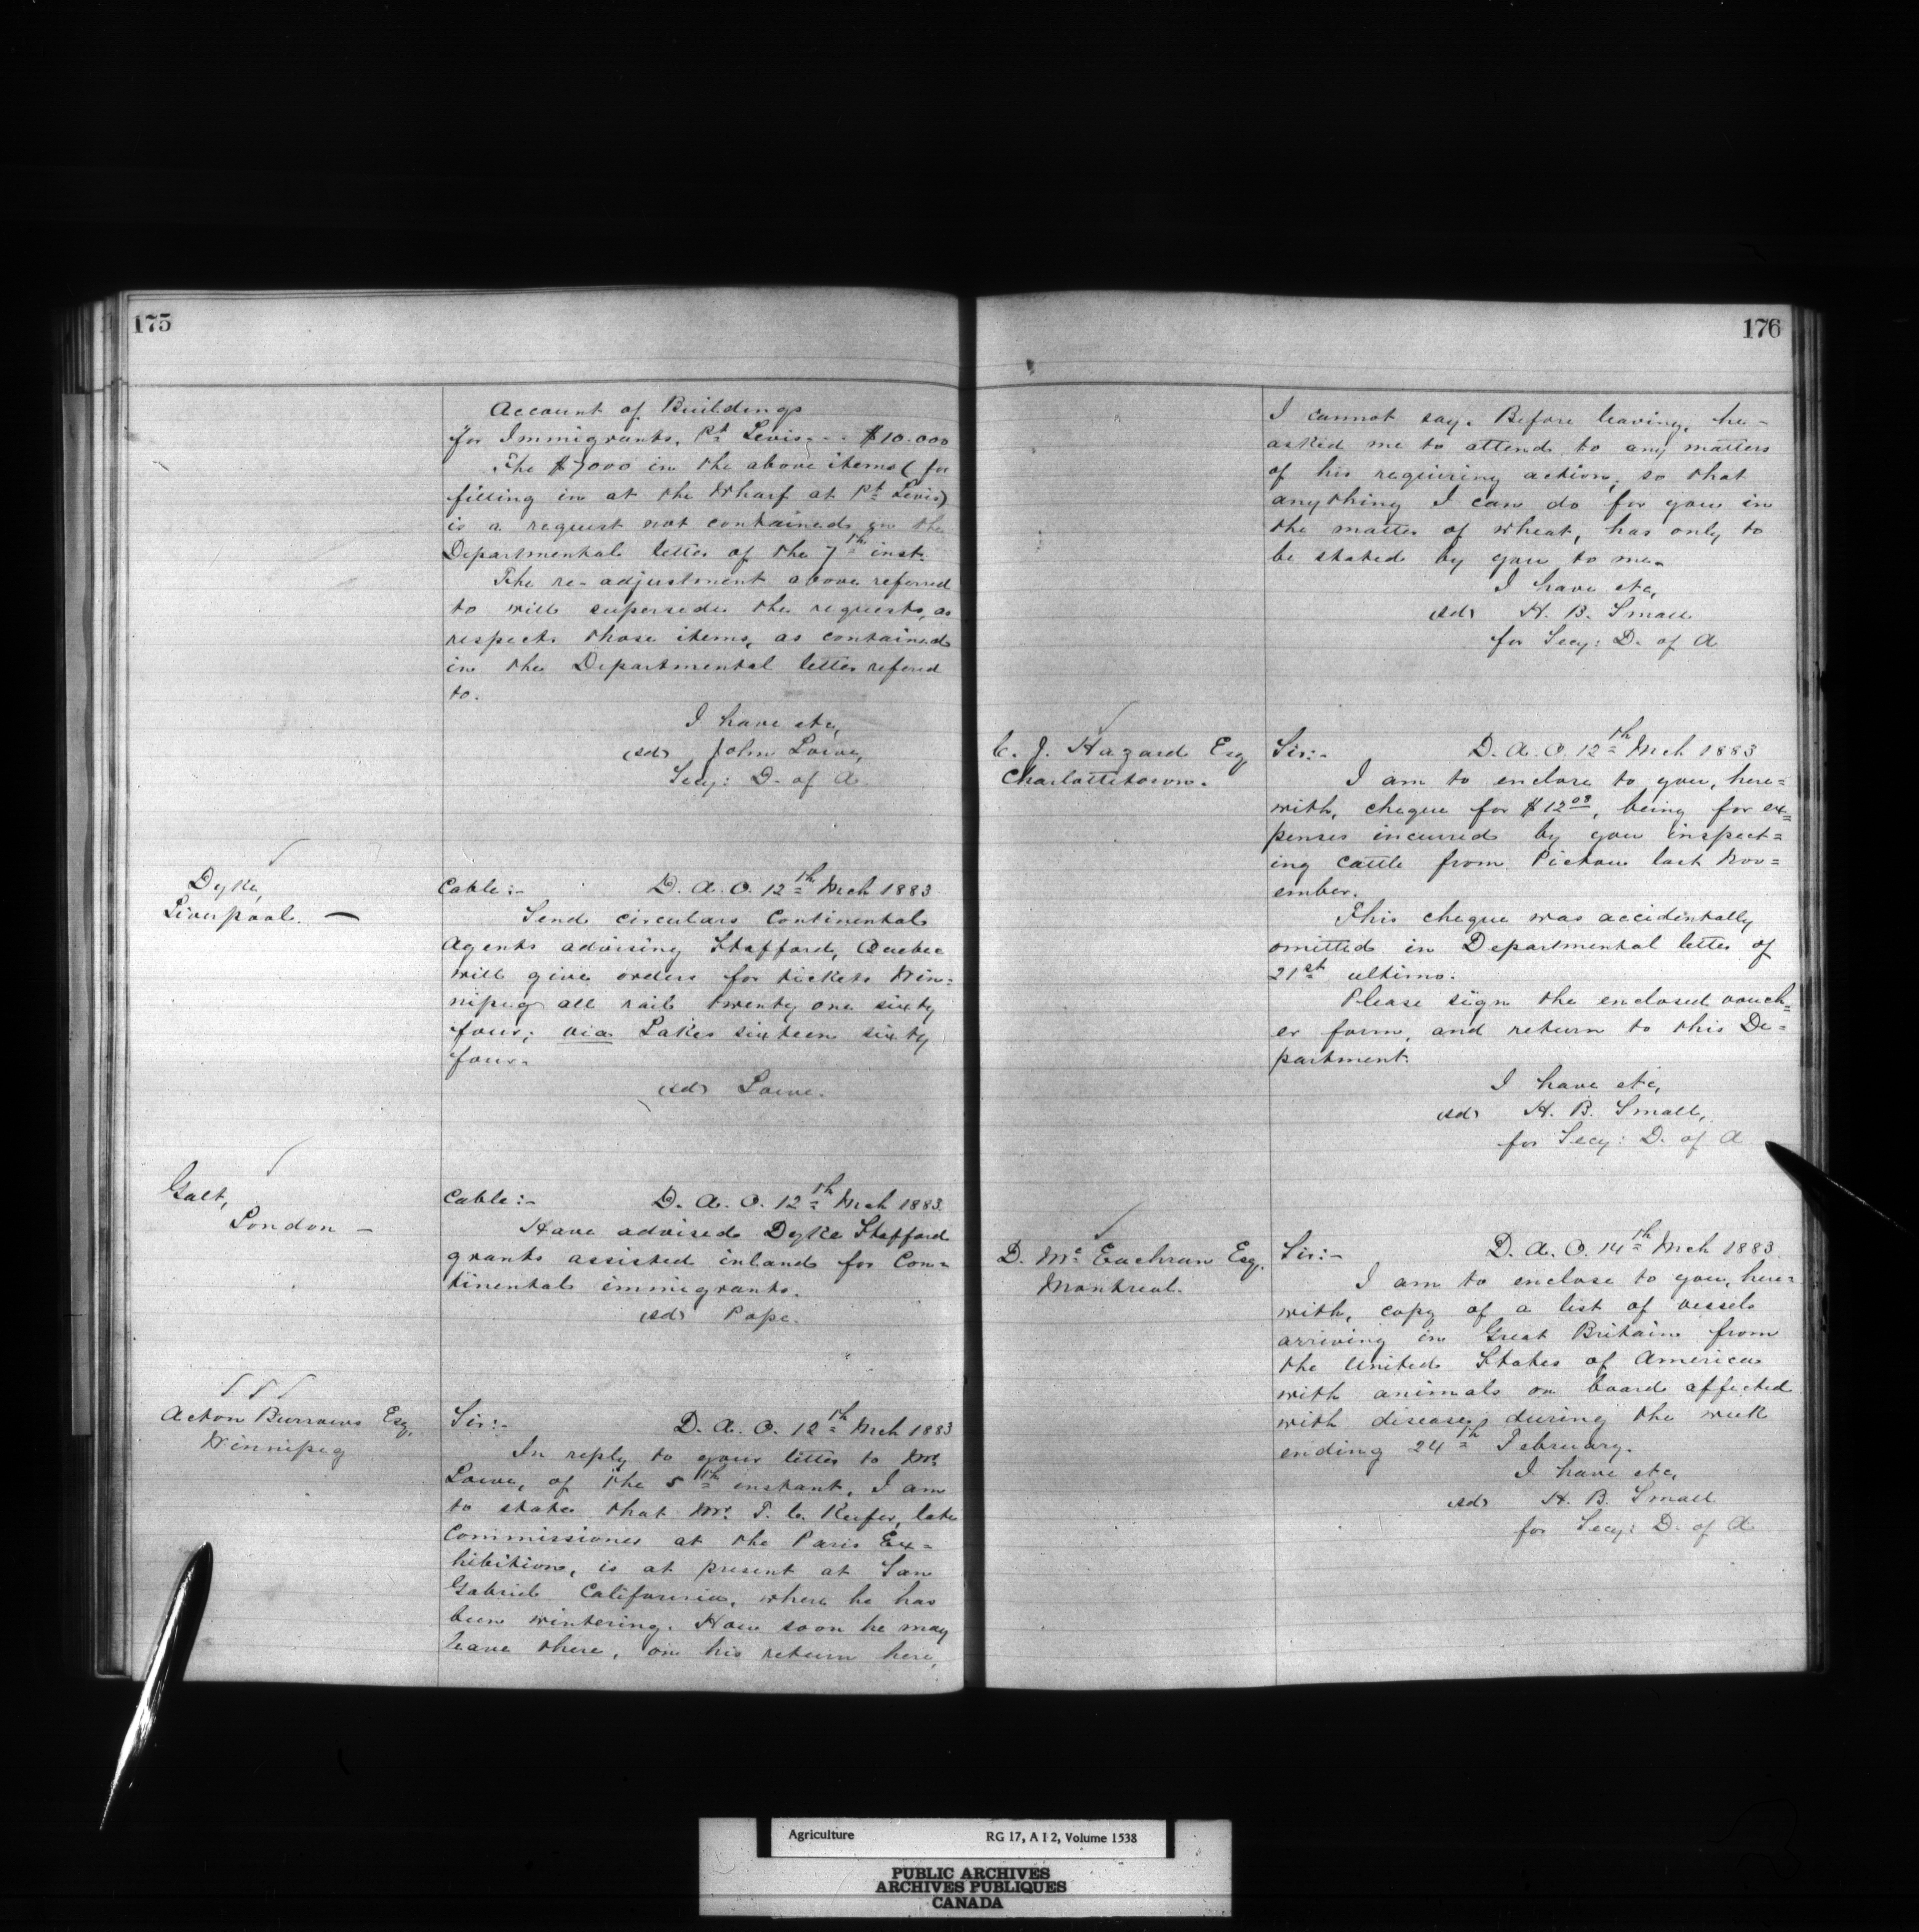 175
Account of Buildings
for Immigrants, Pt Levis, - - $10.000
The $7000 in the above items (for
filling in at the Wharf at Pt Levis)
is a request not contained in the
Departmental letter of the 7th inst.
The re-adjustment above referred
to will supersede the requests, as
respects those items, as contained
in the Departmental letter refered
to.
I have etc,
(sd) John Lowe,
Secy: D. of A.
Dyke,
Liverpool. —
Cable:- D. A. O. 12th Mch 1883.
Send circulars Continental
Agents advising Stafford, Quebec
will give orders for tickets Win=
nipeg all rail twenty one sixty
four; via Lakes sixteen sixty
four.
(sd) Lowe.
Galt,
London —
Cable:- D. A. O. 12th Mch 1883.
Have advised Dyke Stafford
grants assisted inland for Con=
tinental immigrants.
(sd) Pope.
Acton Burrows Esq,
Winnipeg
Sir:- D. A. O. 12th Mch 1883
In reply to your letter to Mr
Lowe, of the 5th instant, I am
to state that Mr. T. C. Keefer, late
Commissioner at the Paris Ex=
hibition, is at present at San
Gabriel California, where he has
been wintering. How soon he may
leave there, on his return here,
176
I cannot say. Before leaving, he -
asked me to attend to any matters
of his requiring action; so that
anything I can do for you in
the matter of wheat, has only to
be stated by you to me.
I have etc,
(sd) H. B. Small
for Secy: D. of A
C. J. Hazard Esq,
Charlottetown.
Sir:- D. A. O. 12th Mch 1883
I am to enclose to you, here=
with, cheque for $12 08, being for ex=
penses incurred by you inspect=
ing cattle from Pictou last Nov=
ember.
This cheque was accidentally
omitted in Departmental letter of
21st ultimo.
Please sign the enclosed vouch=
er form, and return to this De=
partment.
I have etc,
(sd) H. B. Small,
for Secy: D. of A
D. Mc Eachran Esq.
Montreal.
Sir:- D. A. O. 14th Mch 1883.
I am to enclose to you, here=
with, copy of a list of vessels
arriving in Great Britain from
the United States of America
with animals on board affected
with disease, during the week
ending 24th February.
I have etc,
(sd) H. B. Small
for Secy: D. of A
Agriculture RG 17, A I 2, Volume 1538
PUBLIC ARCHIVES
ARCHIVES PUBLIQUES
CANADA